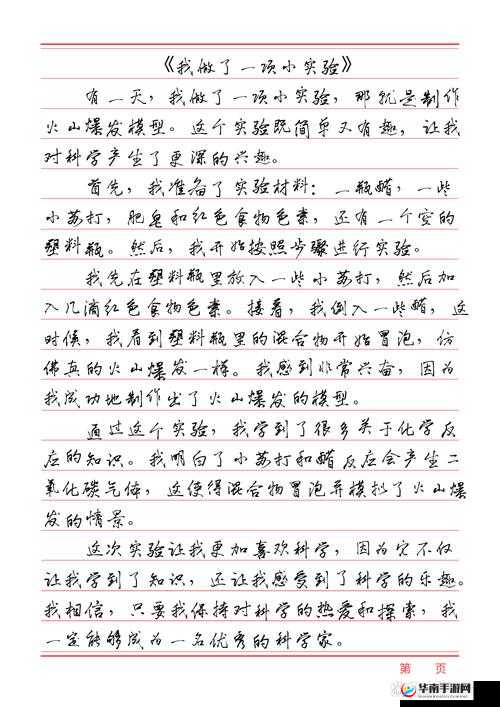 《我做了一项小实验》
有一天，我做了一项小实验，那就是制作
火山爆发模型。这个实验既简单又有趣，让我
对科学产生了更深的兴趣。
首先，我准备了实验材料：一瓶醋，一些
小苏打，肥皂和红色食物色素，还有一个空的
塑料瓶。然后，我开始按照步骤进行实验。
我先在塑料瓶里放入一些小苏打，然后加
入几滴红色食物色素。接着，我倒入一些醋，这
时候，我看到塑料瓶里的混合物开始冒泡，仿
佛真的火山爆发一样。我感到非常兴奋，因为
我成功地制作出了火山爆发的模型。
通过这个实验，我学到了很多关于化学反
应的知识。我明白了小苏打和醋反应会产生二
氧化碳气体，这使得混合物冒泡并模拟了火山爆
发的情景。
这次实验让我更加喜欢科学，因为它不仅
让我学到了知识，还让我感受到了科学的乐趣。
我相信，只要我保持对科学的热爱和探索，我
一定能够成为一名优秀的科学家。
第 页
华南手游网